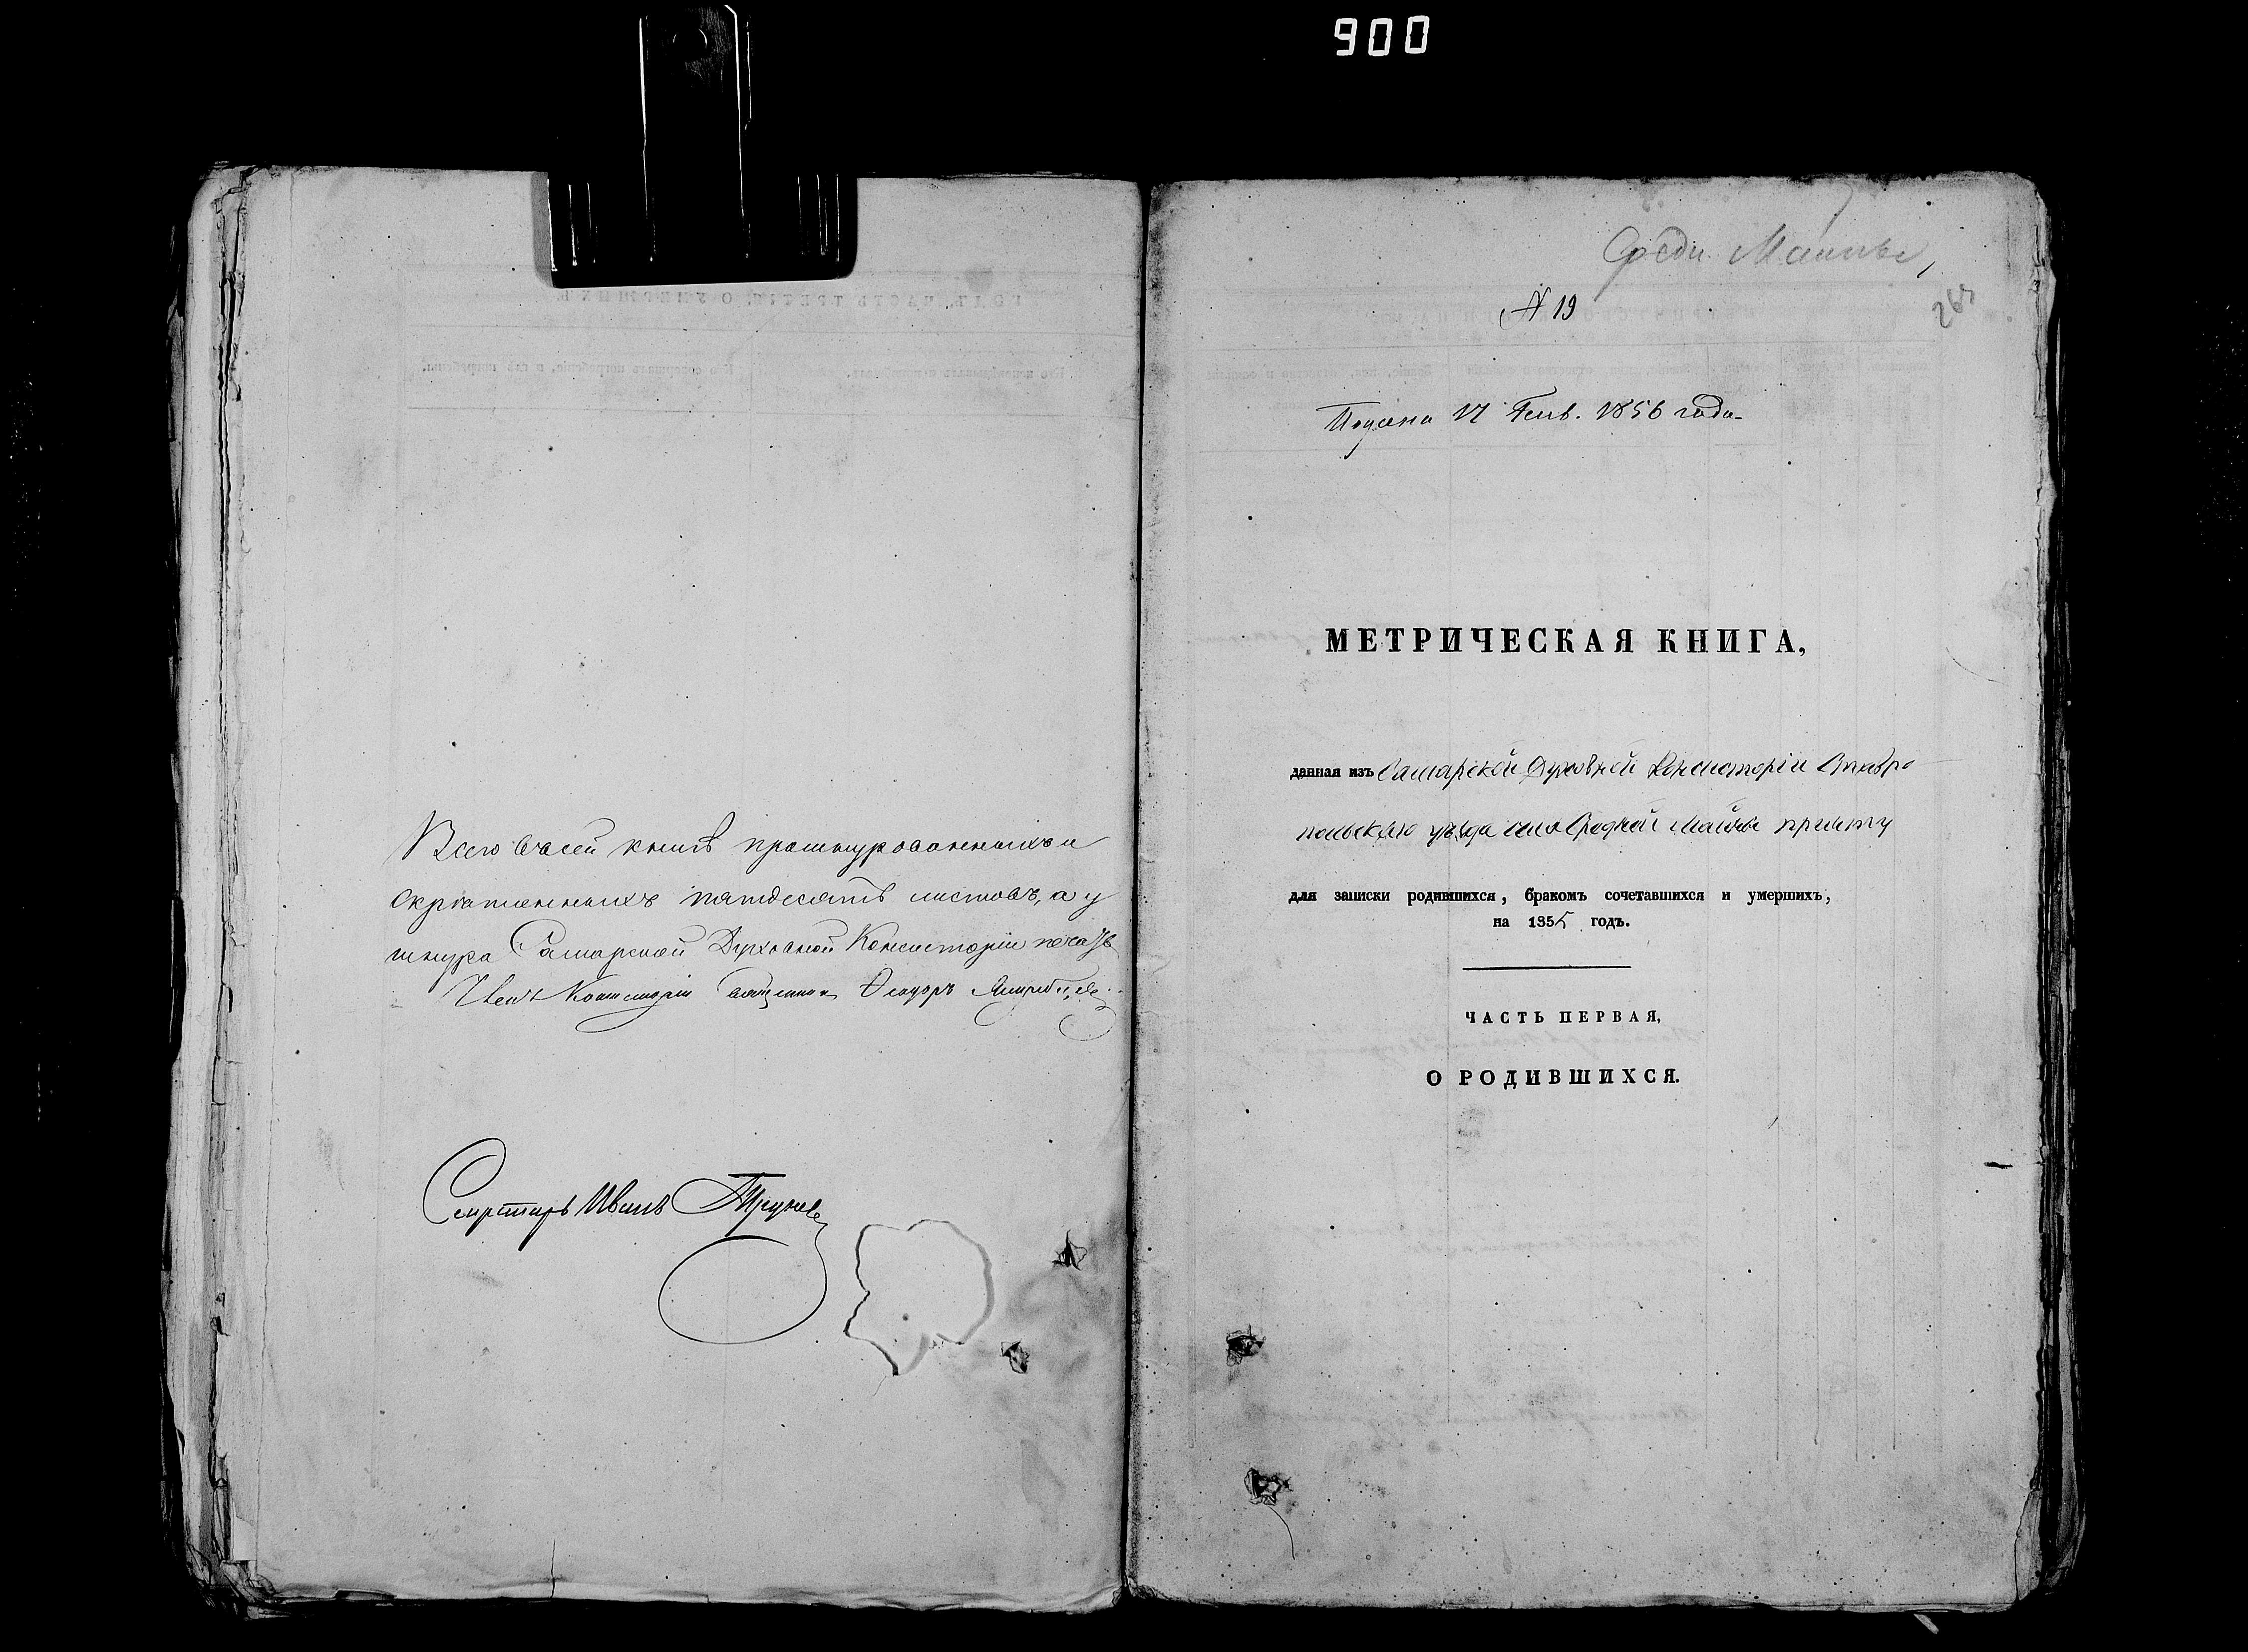 900
Всего въ сей книгѣ прошнурованныхъ и
скрѣпленныхъ пятдесятъ листовъ, а у
шнура Самарской Духовной Консисторіи печать
Членъ Консисторіи Священникъ Ѳеодоръ
Секретарь Иванъ
Средн. Маины
263
№ 19
Подана 17 Генв. 1856 года
МЕТРИЧЕСКАЯ КНИГА,
данная изъ Самарской Духовной Консисторіи Ставро
польскаго уѣзда села Средней Маины причту
для записки родившихся, бракомъ сочетавшихся и умершихъ,
на 1855 годъ.
ЧАСТЬ ПЕРВАЯ,
О РОДИВШИХСЯ.